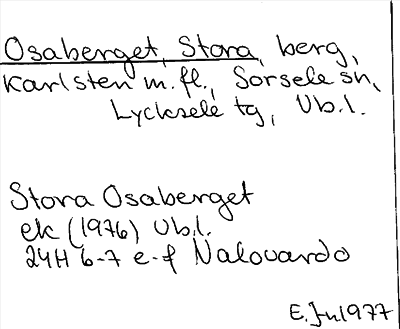 Osaberget, Stora, berg,
Karlsten m. fl., Sorsele sn,
Lycksele tg, Vb.l.
Stora Osaberget
ek (1976) Vb.l.
24H 6-7 e-f Nalovardo
E. Jn 1977